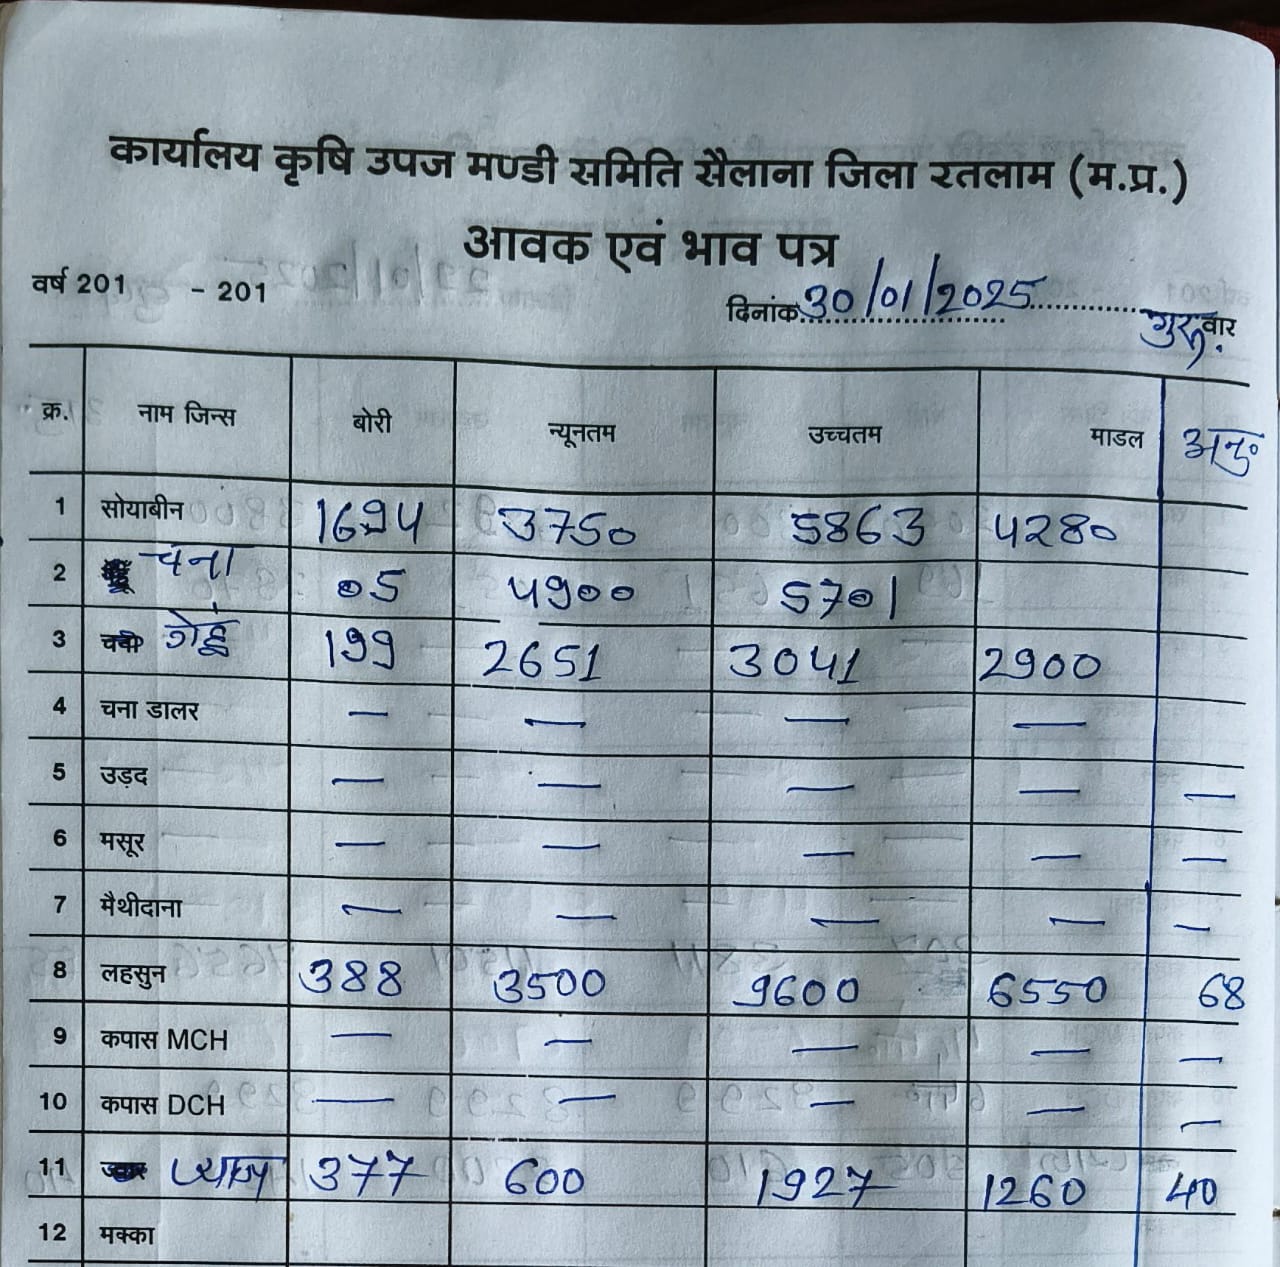 कार्यालय कृषि उपज मण्डी समिति सैलाना जिला रतलाम (म.प्र.)
आवक एवं भाव पत्र
वर्ष 201 - 201
दिनांक 30/01/2025 गुरूवार
क्र. नाम जिन्स बोरी न्यूनतम उच्चतम माडल अनु०
1 सोयाबीन 1694 3750 5863 4280
2 चना 05 4900 5701
3 गेहूं 199 2651 3041 2900
4 चना डालर — — — —
5 उड़द — — — — —
6 मसूर — — — — —
7 मैथीदाना — — — — —
8 लहसुन 388 3500 9600 6550 68
9 कपास MCH — — — — —
10 कपास DCH — — — — —
11 प्याज 377 600 1927 1260 40
12 मक्का